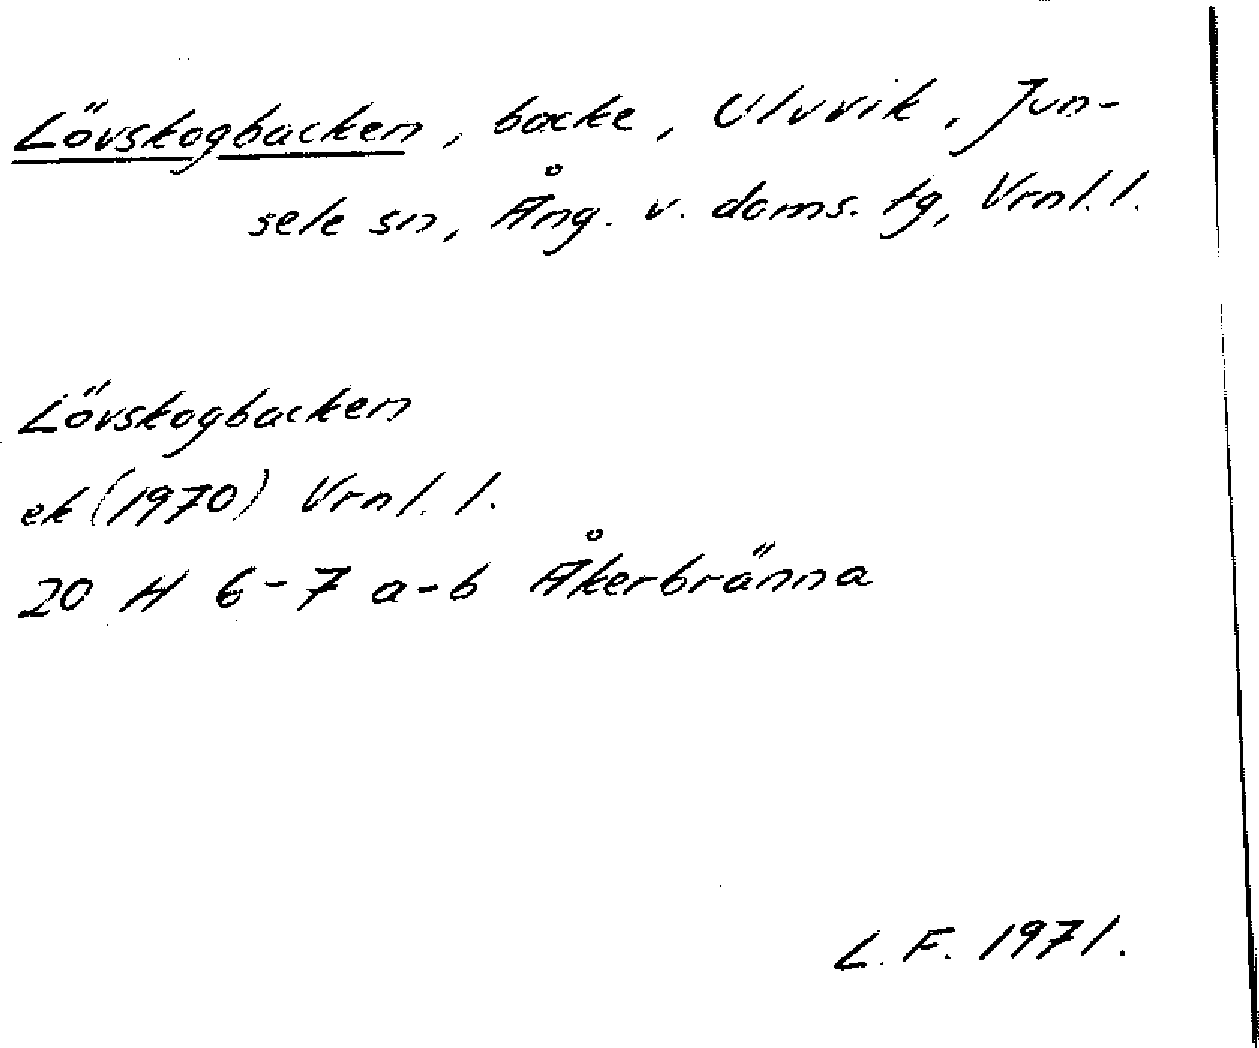 Lövskogbacken, backe, Ulvvik, Jun-
sele sn, Ång. v. doms. tg, Vrnl. l.
Lövskogbacken
ek (1970) Vrnl. l.
20 H 6-7 a-b Åkerbränna
L. F. 1971.